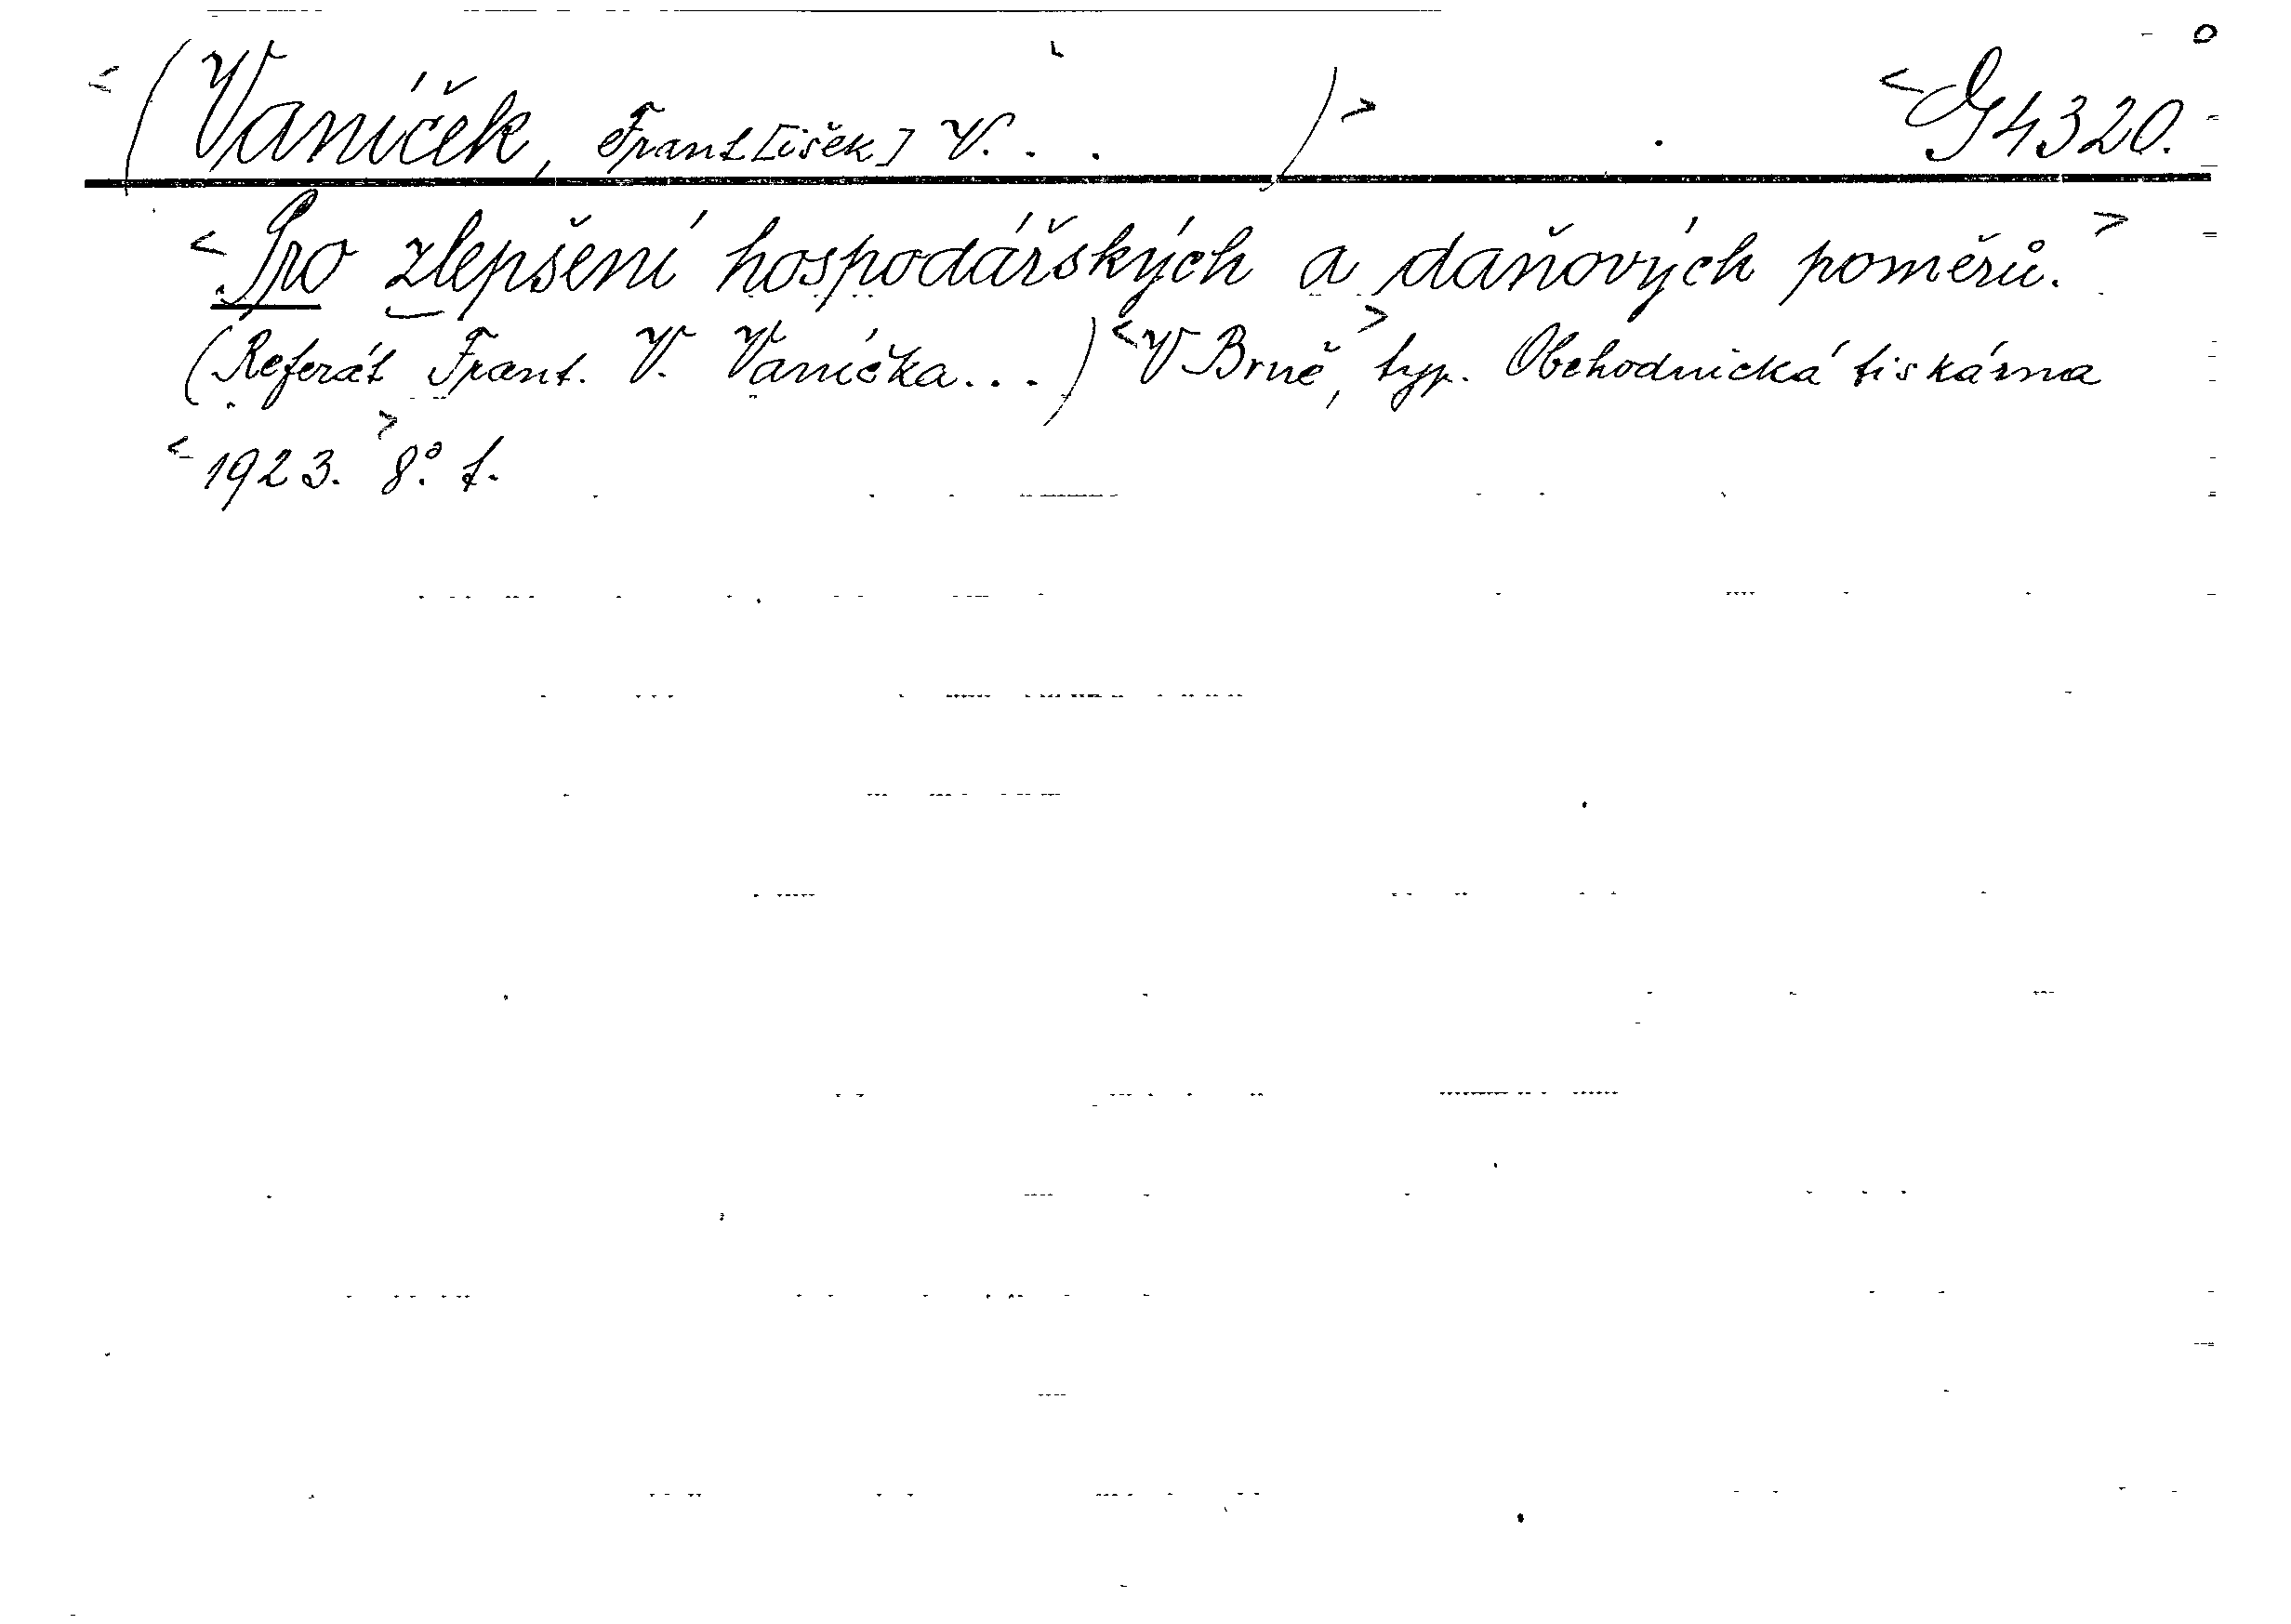 <(Vaníček, Frant[išek] V. . . )> <G 4320.
<Pro zlepšení hospodářských a daňových poměrů.>
(Referát Frant. V. Vaníčka...) <V Brně,> typ. Obchodnická tiskárna
<1923.> 8°. t.